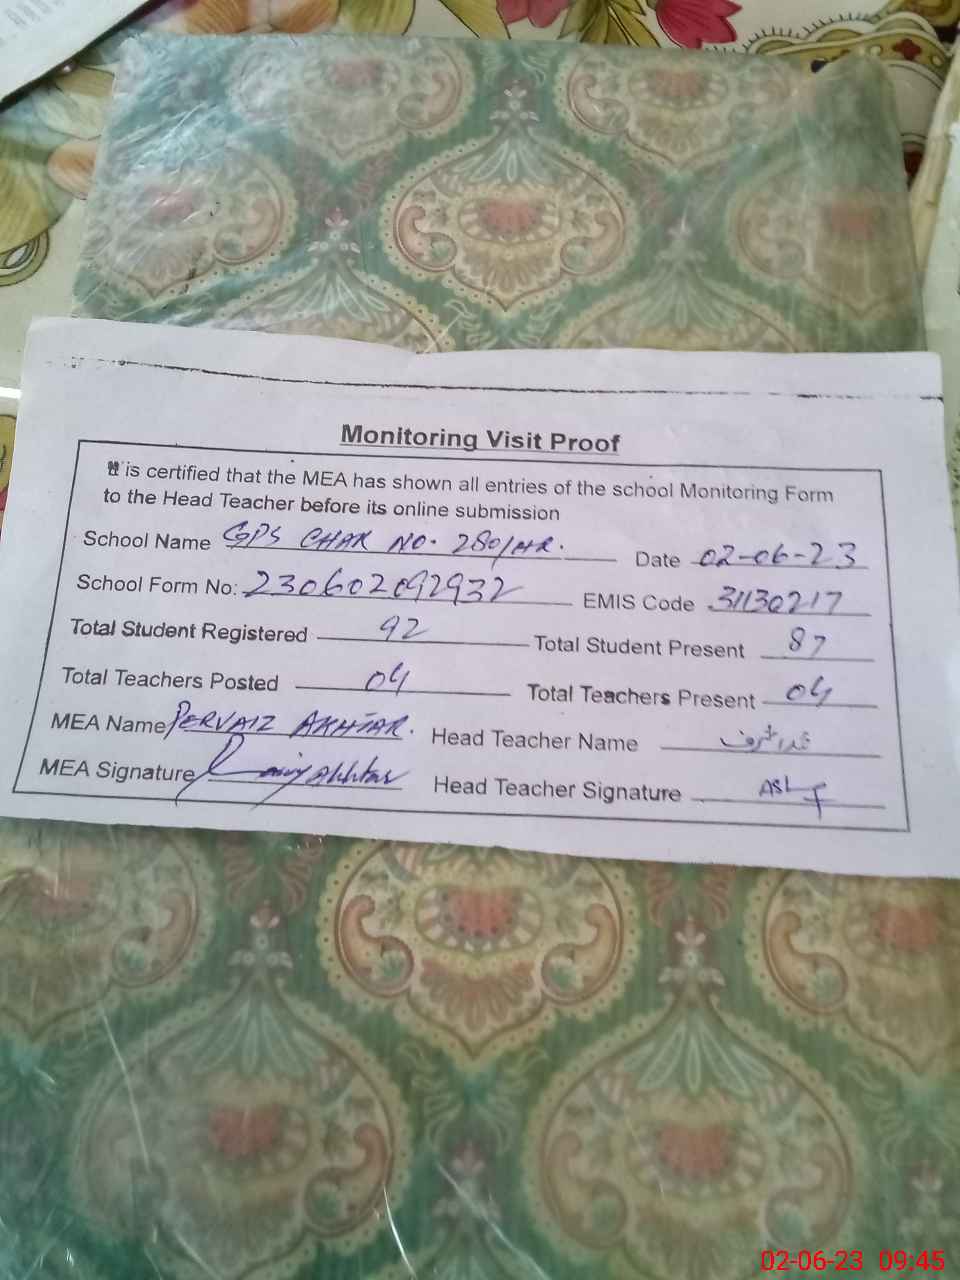 Monitoring Visit Proof
It is certified that the MEA has shown all entries of the school Monitoring Form
to the Head Teacher before its online submission
School Name GPS CHAK NO. 280/HR. Date 02-06-23
School Form No: 230602092932 EMIS Code 31130217
Total Student Registered 92 Total Student Present 87
Total Teachers Posted 04 Total Teachers Present 04
MEA Name PERVAIZ AKHTAR. Head Teacher Name
MEA Signature Pervaiz Akhtar Head Teacher Signature
02-06-23 09:45